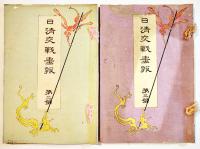 日清交戰畫報
第二篇
日清交戰畫報
第三篇